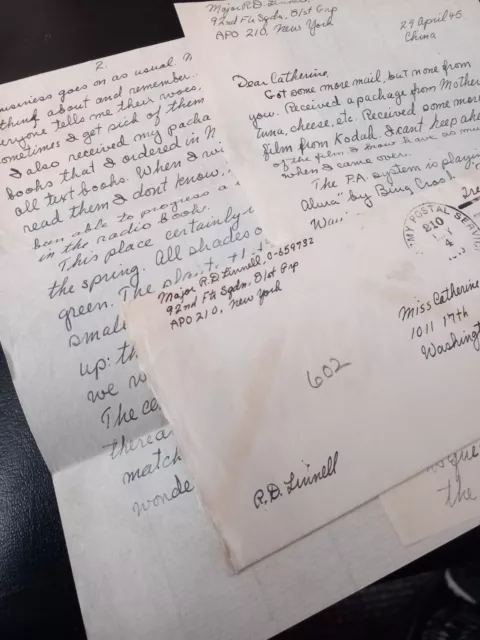 Major R.D. Linnell
92nd Ftr Sqdn, 81st Grp
APO 210, New York
29 April 45
China
Dear Catherine,
Got some more mail, but none from
you. Received a package from Mother
tuna, cheese, etc. Received some more
film from Kodak. I cant keep
of the film I now have as
when I came over.
The P.A. system is playing
by Bing
2.
goes on as usual.
think about and remember.
tells me their woes.
sometimes I get sick of them
I also received my
books that I ordered in
all text books. When I
read them I dont know.
been able to progress a
in the radio book.
This place certainly
the spring. All shades
green. The
up:
we
The
match
Major R.D. Linnell, O-659732
92nd Ftr Sqdn, 81st Grp
APO 210, New York
ARMY POSTAL SERVICE
210
4
Miss Catherine
1011 17th
Washington
602
R.D. Linnell
the